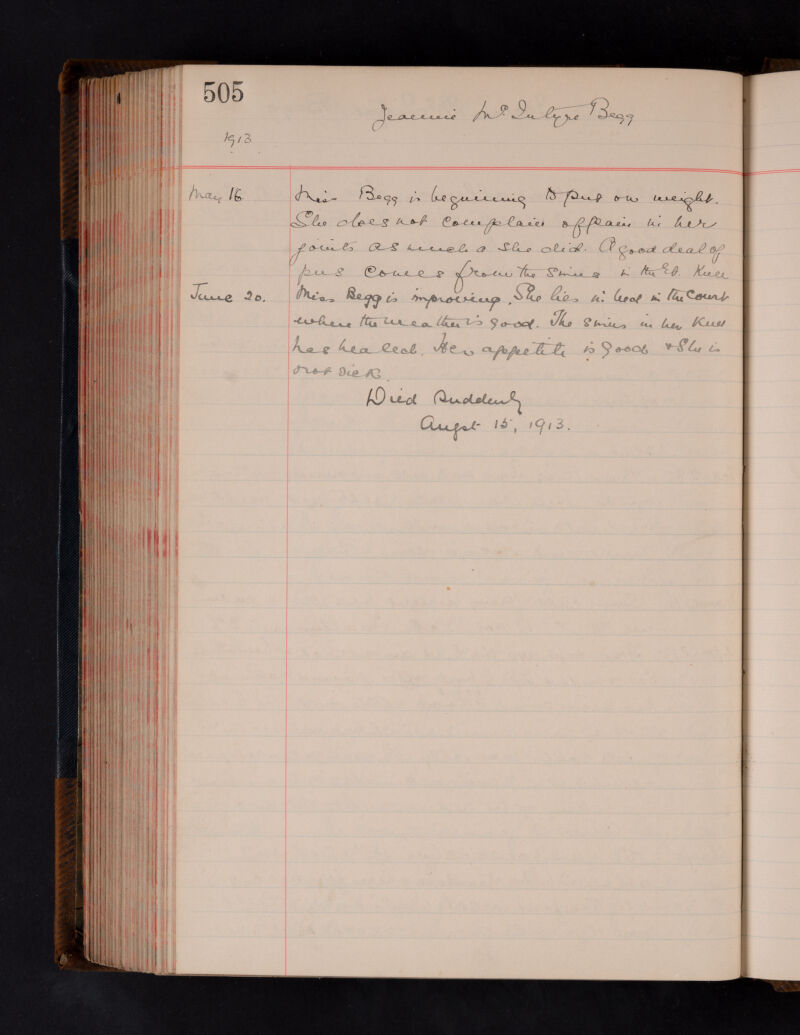 505
Jeannie McIntyre Begg
1913
May 16 Miss Begg is beginning to put on weight.
She does not complain of pain in her
joints as much as she did. A good deal of
pus comes from the sinus in the Knee
June 20. Miss Begg is improving. She lies in bed in the Court
where the weather is good. The sinus in her Knee
has healed. Her appetite is good & She is
not sick.
Died Suddenly
Augst 15, 1913.